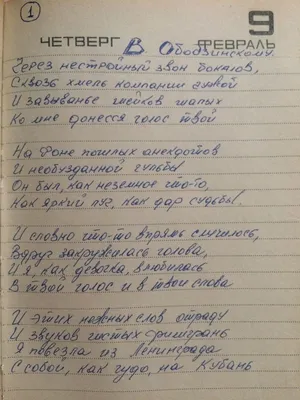 1
9
ЧЕТВЕРГ
ФЕВРАЛЬ
В. Ободзинскому.
Через нестройный звон бокалов,
Сквозь хмель компании чужой
И завыванье шейков шалых
Ко мне донёсся голос твой
На фоне пошлых анекдотов
И необузданной гульбы
Он был, как неземное что-то,
Как яркий луч, как дар судьбы.
И словно что-то впрямь случилось,
Вдруг закружилась голова,
И я, как девочка, влюбилась
В твой голос и в твои слова
И этих нежных слов отраду
И звуков чистых филигрань
Я повезла из Ленинграда
С собой, как чудо, на Кубань